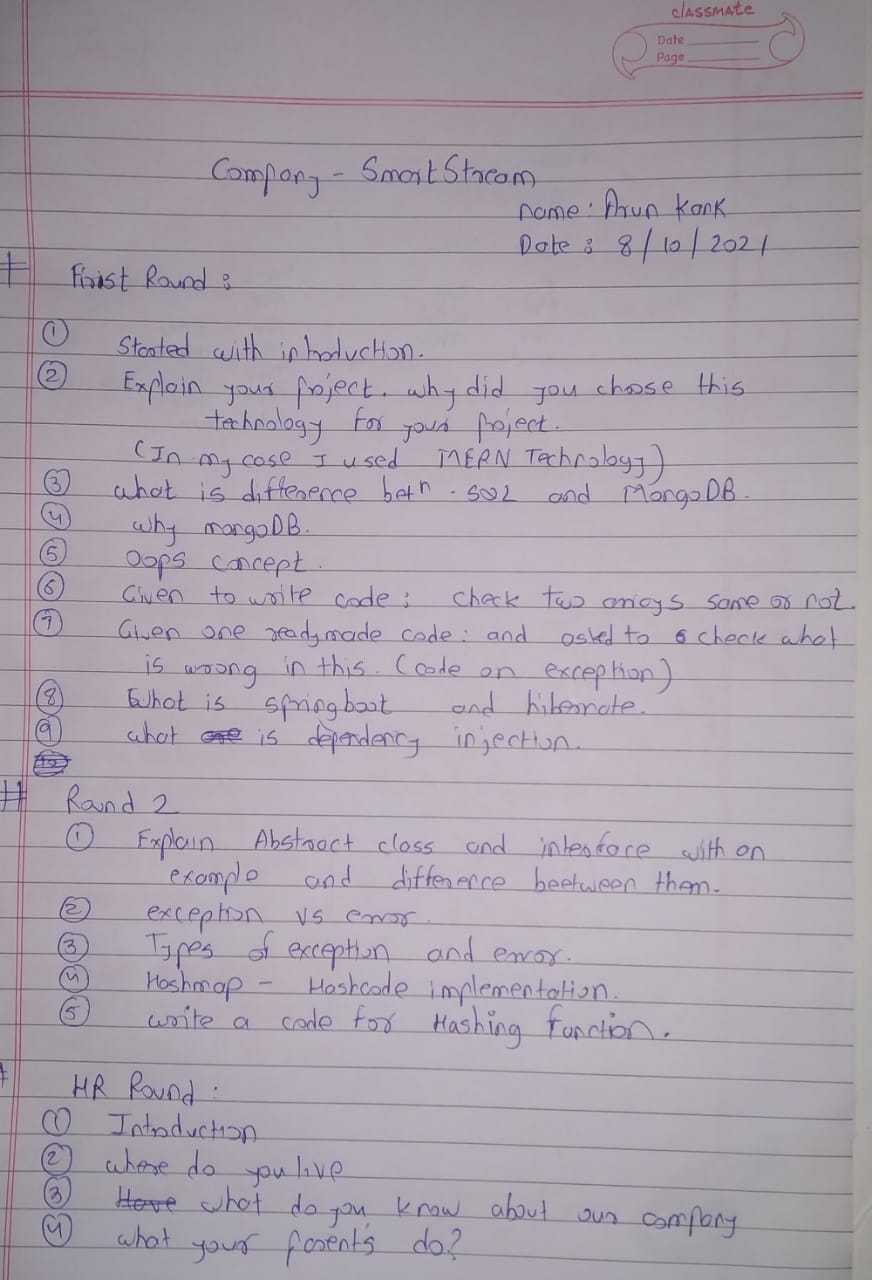 classmate
Date
Page
Company - SmartStream
name: Arun Kank
Date : 8/10/2021
# First Round :
① Started with introduction.
② Explain your project. why did you choose this
technology for your project.
(In my case I used MERN Technology)
③ what is difference betn. SQL and MongoDB.
④ why mongoDB.
⑤ Oops concept.
⑥ Given to write code : check two arrays same or not.
⑦ Given one readymade code : and asked to check what
is wrong in this. (code on exception)
⑧ What is springboot and hibernate.
⑨ what is dependency injection.
# Round 2
① Explain Abstract class and interface with an
example and difference beetween them.
② exception vs error.
③ Types of exception and error.
④ Hashmap - Hashcode implementation.
⑤ write a code for Hashing function.
# HR Round :
① Introduction
② where do you live
③ what do you know about our company
④ what your parent's do?